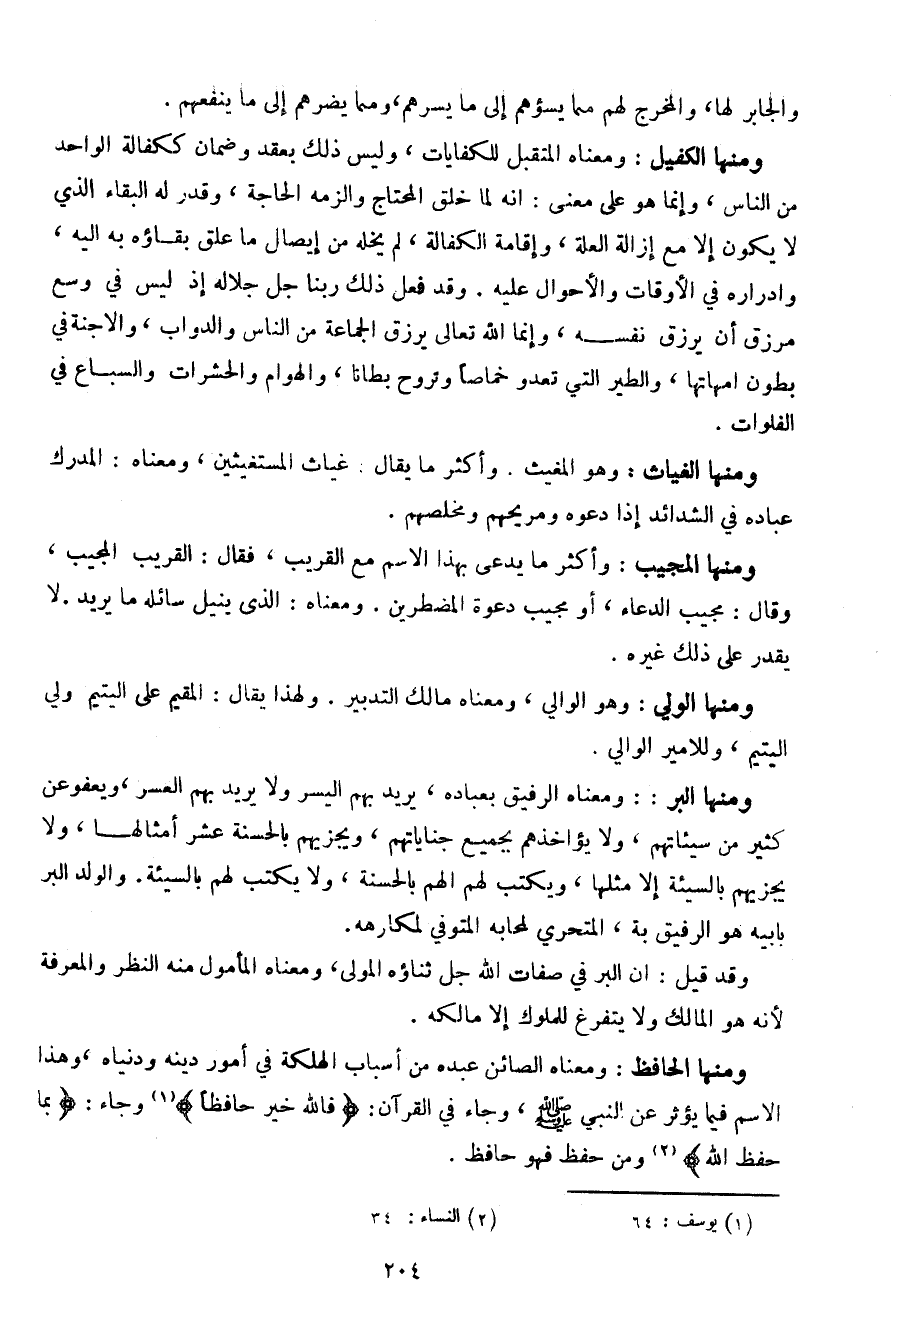 والجابر لها، والمخرج لهم مما يسؤهم إلى ما يسرهم،ومما يضرهم إلى ما ينفعهم .
ومنها الكفيل : ومعناه المتقبل للكفايات ، وليس ذلك بعقد وضمان ككفالة الواحد
من الناس ، وإنما هو على معنى : انه لما خلق المحتاج والزمه الحاجة ، وقدر له البقاء الذي
لا يكون إلا مع إزالة العلة ، وإقامة الكفالة ، لم يخله من إيصال ما علق بقاؤه به اليه ،
وادراره في الأوقات والأحوال عليه . وقد فعل ذلك ربنا جل جلاله إذ ليس في وسع
مرزق أن يرزق نفسه ، وإنما الله تعالى يرزق الجماعة من الناس والدواب ، والاجنة في
بطون امهاتها ، والطير التي تعدو خماصاً وتروح بطانا ، والهوام والحشرات والسباع في
الفلوات .
ومنها الغياث : وهو المغيث . وأكثر ما يقال : غياث المستغيثين ، ومعناه : المدرك
عباده في الشدائد إذا دعوه ومريحهم ومخلصهم .
ومنها المجيب : وأكثر ما يدعى بهذا الاسم مع القريب ، فقال : القريب المجيب ،
وقال : مجيب الدعاء ، أو مجيب دعوة المضطرين . ومعناه : الذى ينيل سائله ما يريد .لا
يقدر على ذلك غيره .
ومنها الولي : وهو الوالي ، ومعناه مالك التدبير . ولهذا يقال : المقيم على اليتيم ولي
اليتيم ، وللامير الوالي .
ومنها البر : : ومعناه الرفيق بعباده ، يريد بهم اليسر ولا يريد بهم العسر ،ويعفوعن
كثير من سيئاتهم ، ولا يؤاخذهم بجميع جناياتهم ، ويجزيهم بالحسنة عشر أمثالها ، ولا
يجزيهم بالسيئة إلا مثلها ، ويكتب لهم الهم بالحسنة ، ولا يكتب لهم بالسيئة. والولد البر
بابيه هو الرفيق بة ، المتحري لمحابه المتوفي لمكارهه.
وقد قيل : ان البر في صفات الله جل ثناؤه المولى، ومعناه المأمول منه النظر والمعرفة
لأنه هو المالك ولا يتفرغ للملوك إلا مالكه .
ومنها الحافظ : ومعناه الصائن عبده من أسباب الهلكة في أمور دينه ودنياه ،وهذا
الاسم فيما يؤثر عن النبي ﷺ ، وجاء في القرآن: ﴿ فالله خير حافظاً ﴾(١) وجاء : ﴿ بما
حفظ الله ﴾ (٢) ومن حفظ فهو حافظ .
(١) يوسف : ٦٤ (٢) النساء : ٣٤
٢٠٤